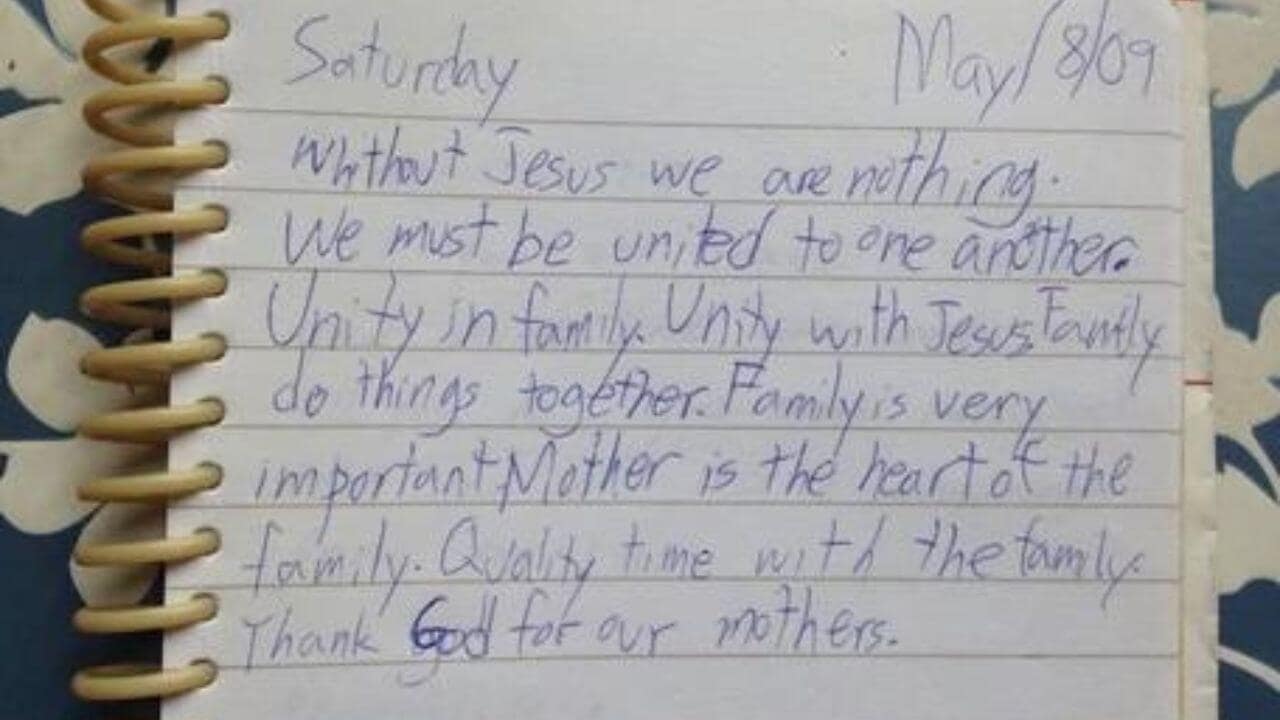 Saturday May/8/09
Whithout Jesus we are nothing.
We must be united to one another.
Unity in family. Unity with Jesus. Family
do things together. Family is very
important Mother is the heart of the
family. Quality time with the family.
Thank God for our mothers.